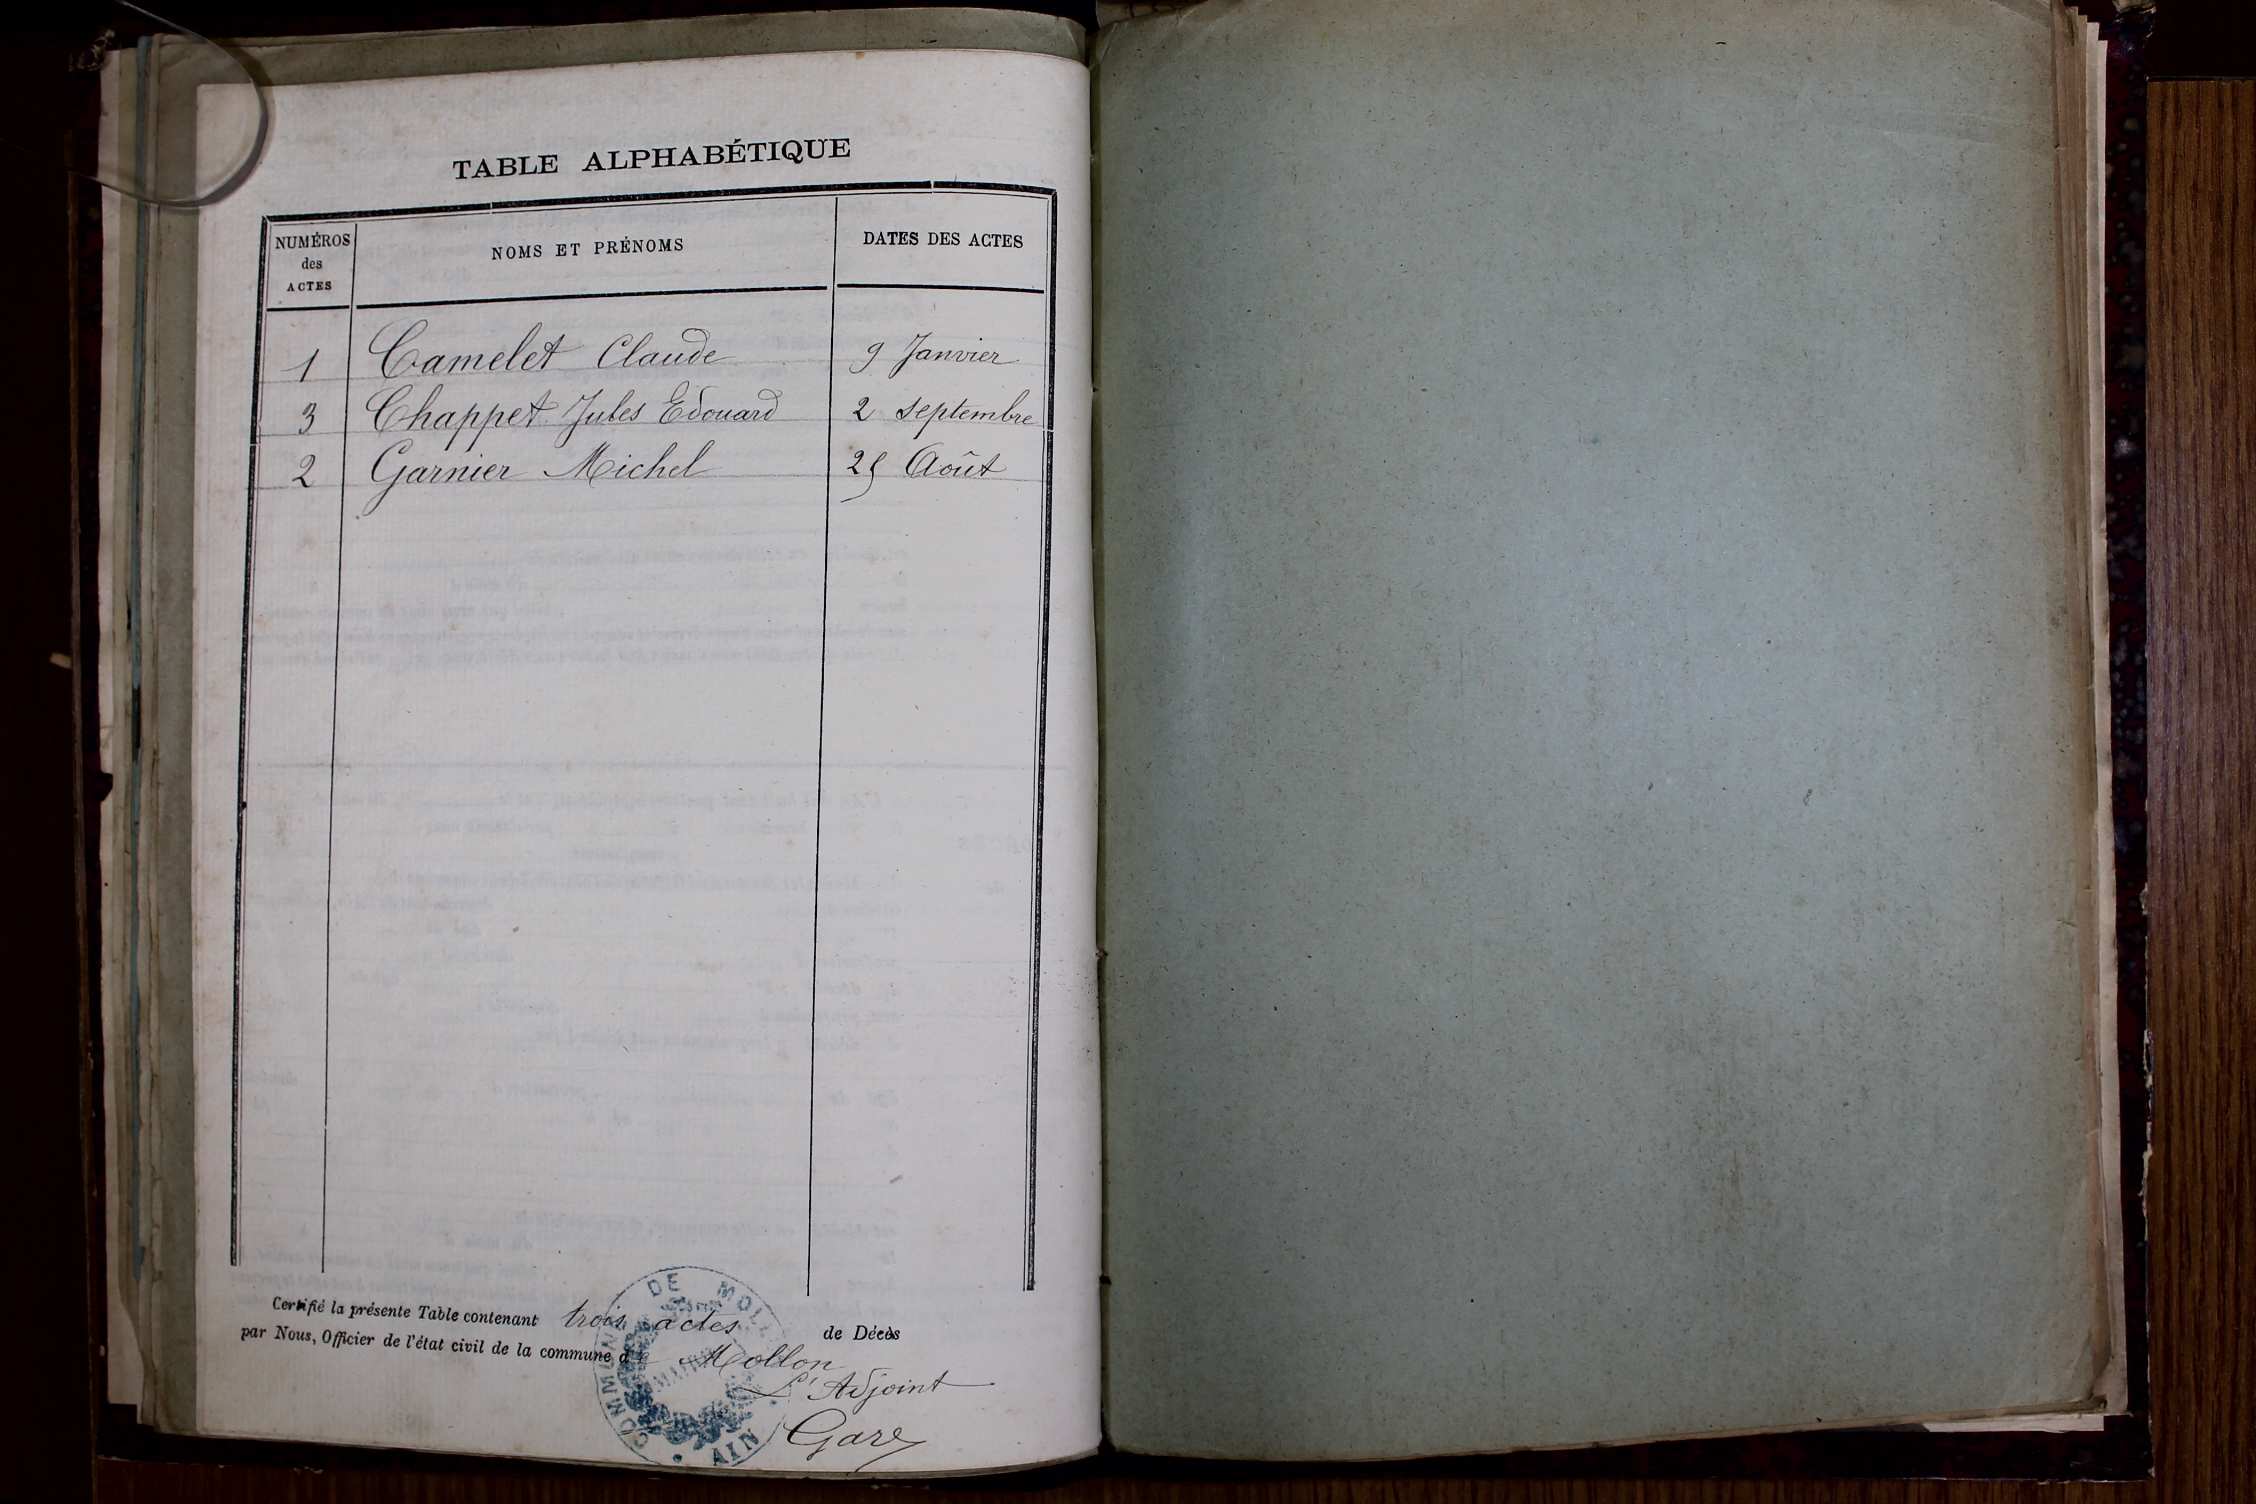 TABLE ALPHABÉTIQUE
NUMÉROS des ACTES NOMS ET PRÉNOMS DATES DES ACTES
1 Camelet Claude 9 Janvier
3 Chappet Jules Edouard 2 Septembre
2 Garnier Michel 25 Août
Certifié la présente Table contenant trois actes de Décès
par Nous, Officier de l'état civil de la commune de Mollon
L'Adjoint
COMMUNE DE MOLLON
AIN